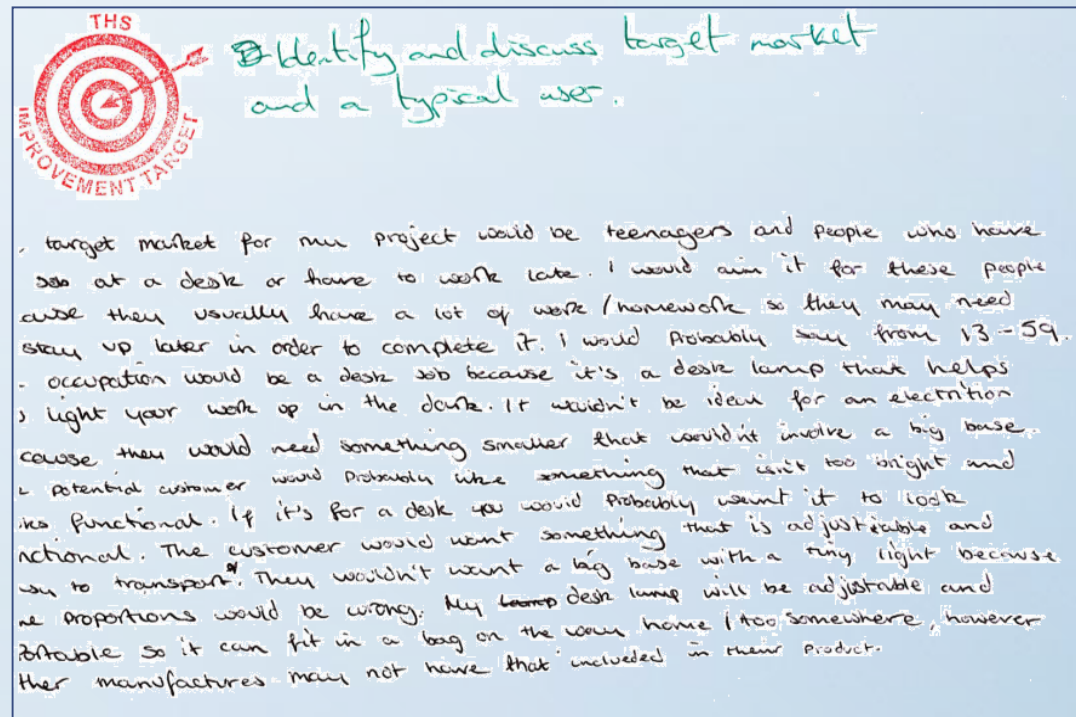 THS
IMPROVEMENT TARGET
Identify and discuss target market
and a typical user.
target market for my project would be teenagers and people who have
job at a desk or have to work late. i would aim it for these people
cause they usually have a lot of work / homework so they may need
stay up later in order to complete it. i would Probably say from 13-59.
occupation would be a desk job because it's a desk lamp that helps
light your work up in the dark. It wouldn't be ideal for an electrition
cause they would need something smaller that wouldn't involve a big base.
potential customer would Probably like something that isn't too bright and
ks functional. If it's for a desk you would Probably want it to look
nctional. The customer would want something that is adjustable and
sy to transport. They wouldn't want a big base with a tiny light because
e proportions would be wrong. My desk lamp will be adjustable and
ortable so it can fit in a bag on the way home / too somewhere, however
ther manufactures may not have that inclueded in their Product.